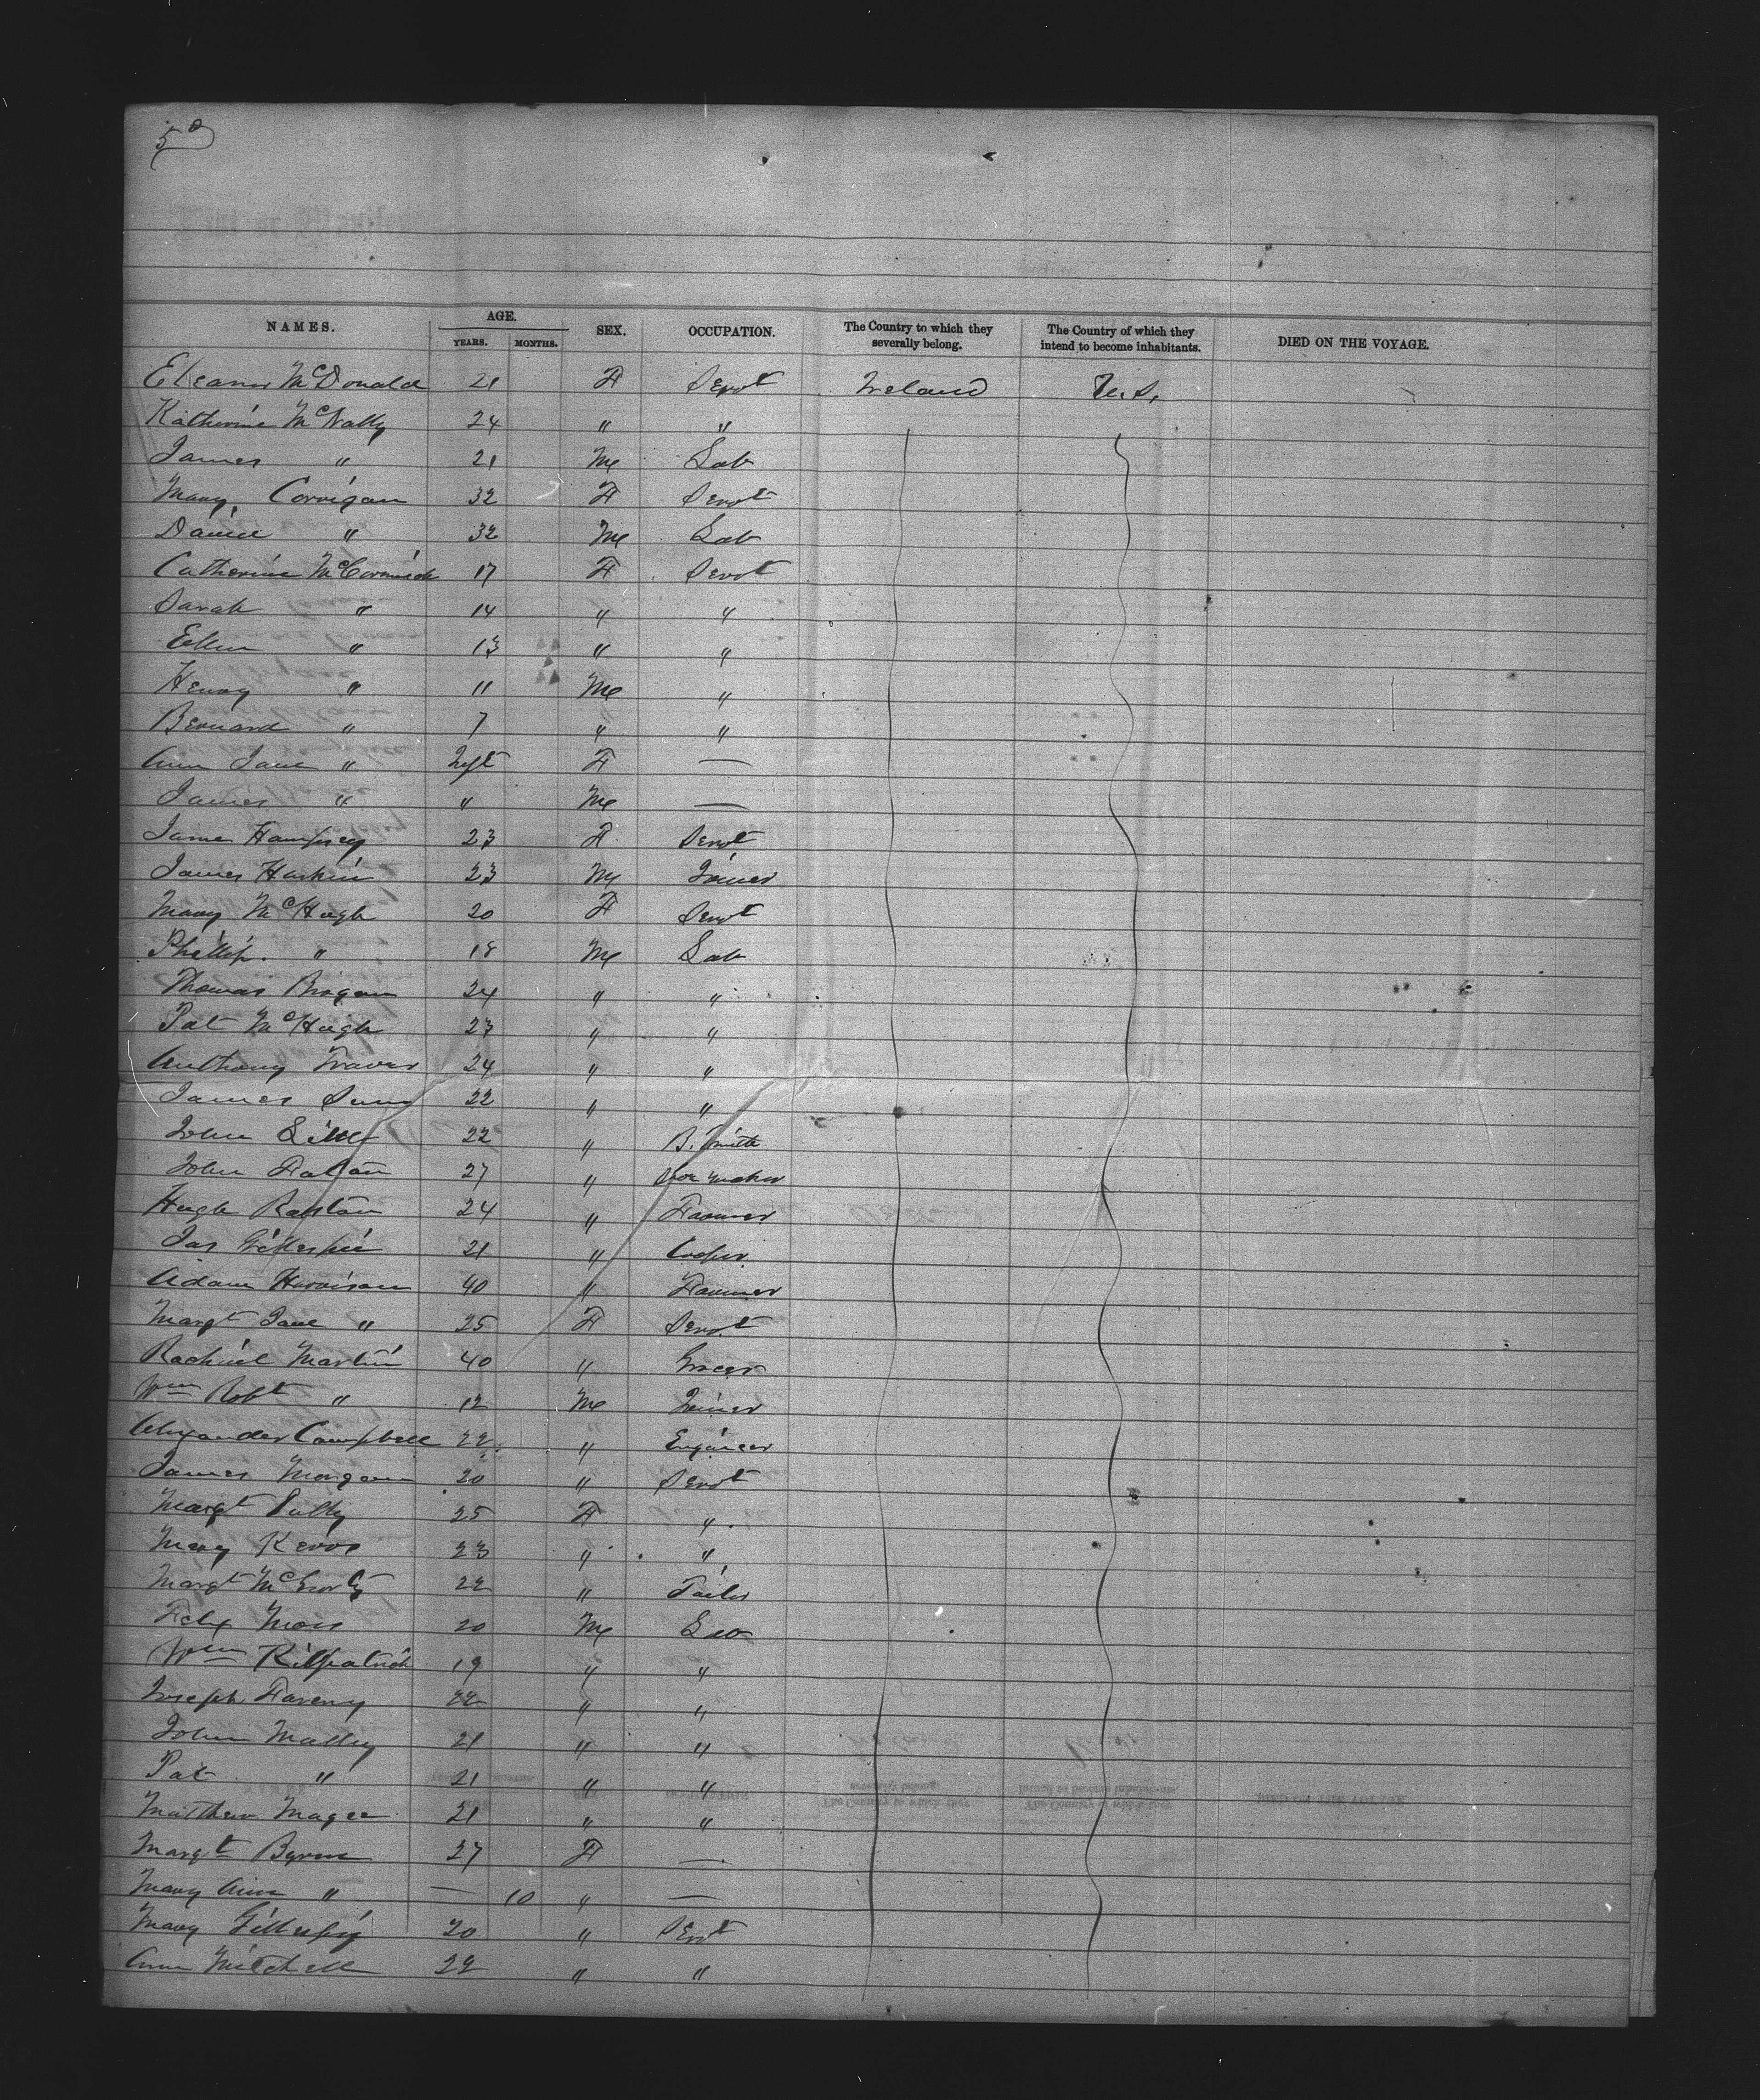 5
NAMES. AGE. YEARS. MONTHS. SEX. OCCUPATION. The Country to which they severally belong. The Country of which they intend to become inhabitants. DIED ON THE VOYAGE.
Eleanor McDonald 21 F Servt Ireland U.S.
Katherine McNally 24 " "
James " 21 M Lab
Mary Corrigan 32 F Servt
Daniel " 32 M Lab
Catherine McCormick 17 F Servt
Sarah " 14 " "
Ellen " 13 " "
Henry " 11 M "
Bernard " 7 " "
Ann Jane " Inft F —
James " " M —
Jane Hampsey 23 F Servt
James Harkin 23 M Joiner
Mary McHugh 20 F Servt
Phillip " 18 M Lab
Thomas Brogan 24 " "
Pat McHugh 23 " "
Anthony Travers 24 " "
James 22 " "
John 22 " B. Smith
John 27 " Shoe maker
Hugh 24 " Farmer
Jas Gillespie 21 " Cooper
Adam Harrison 40 " Farmer
Margt Jane " 25 F Servt
Rachiel Martin 40 " Grocer
Wm Robt " 12 M Joiner
Alexander Campbell 22 " Engineer
James Morgan 20 " Servt
Margt 25 F "
Mary 23 " "
Margt 22 " Tailor
Felix 20 M Lab
Wm Kilpatrick 19 " "
Joseph 22 " "
John Malley 21 " "
Pat " 21 " "
Matthew Magee 21 " "
Margt Byrne 27 F —
Mary Ann " — 10 " —
Mary Gillespie 20 " Servt
Ann Mitchell 22 " "